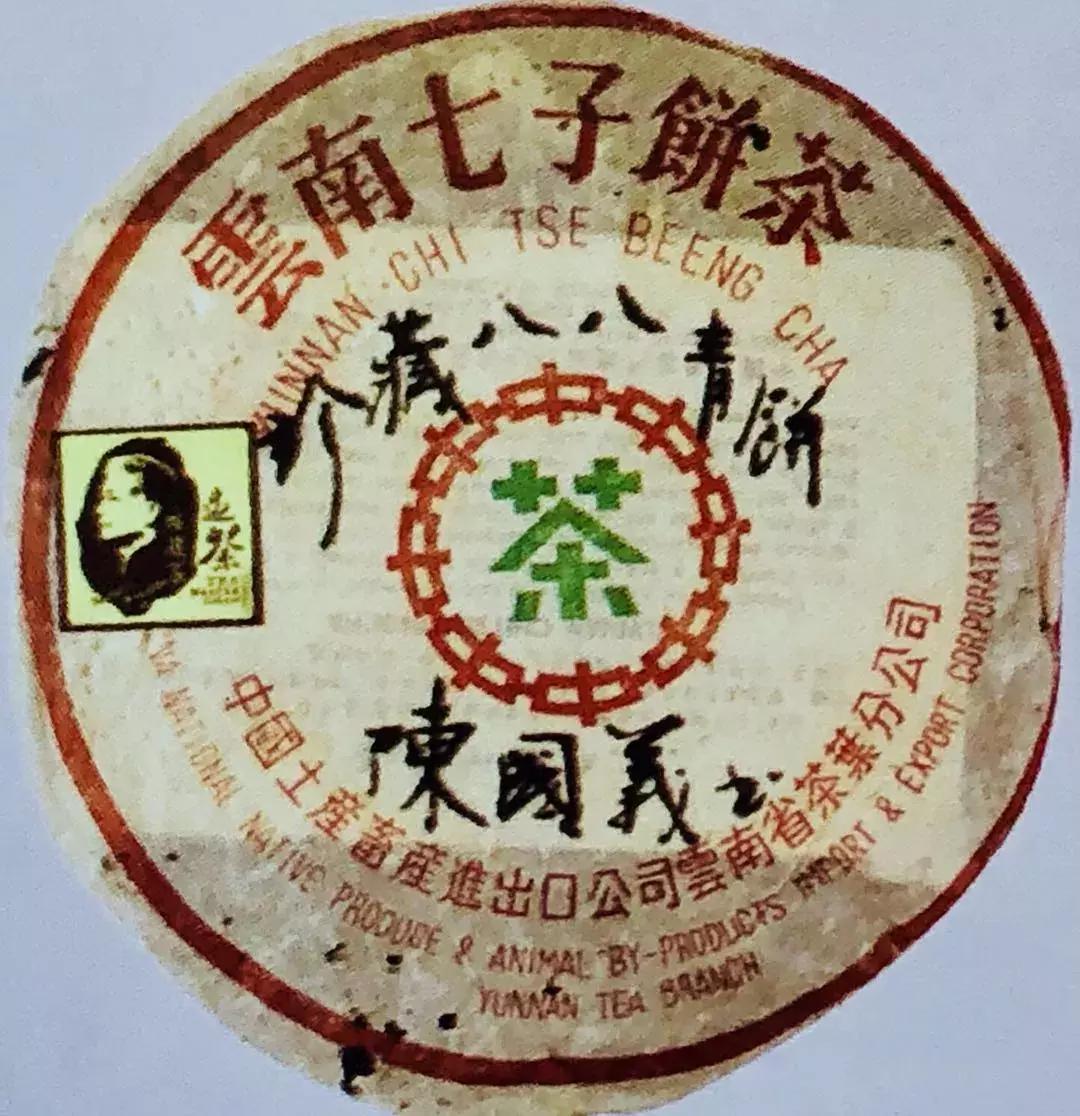 雲南七子餅茶
YUNNAN CHI TSE BEENG CHA
珍藏八八青餅
中中中中中中中中
茶
陳國義
中國土產畜產進出口公司雲南省茶葉分公司
NATIONAL NATIVE PRODUCE & ANIMAL BY-PRODUCTS IMPORT & EXPORT CORPORATION
YUNNAN TEA BRANCH